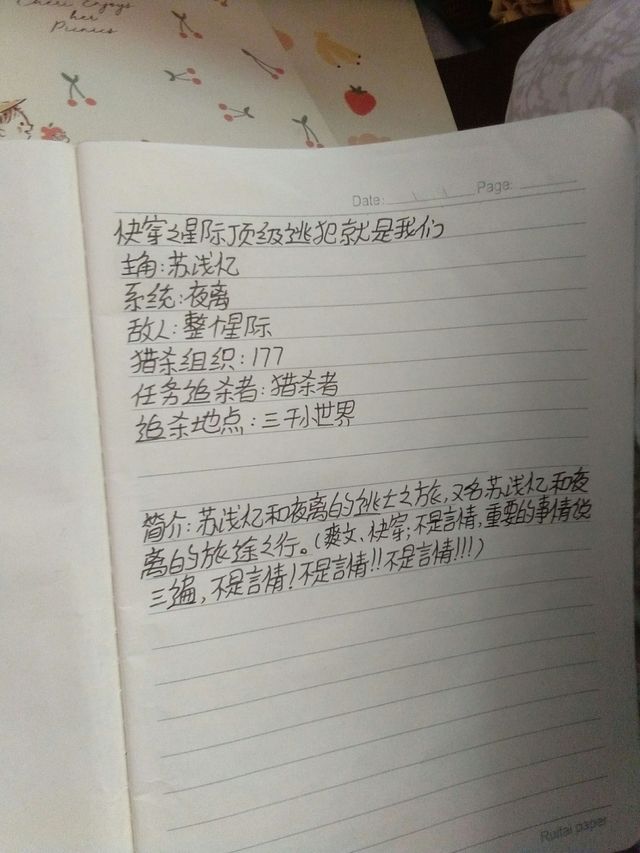 Cheri Enjoys
her
Picnics
Date: Page:
快穿之星际顶级逃犯就是我们
主角:苏浅忆
系统:夜离
敌人:整个星际
猎杀组织:177
任务追杀者:猎杀者
追杀地点:三千小世界
简介:苏浅忆和夜离的逃亡之旅,又名苏浅忆和夜
离的旅途之行。(爽文、快穿;不是言情,重要的事情说
三遍,不是言情!不是言情!!不是言情!!!)
Ruitai paper